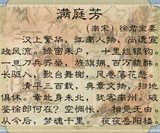 满庭芳
（南宋）徐君宝妻
汉上繁华，江南人物，尚遗宣
政风流。绿窗朱户，十里烂银钩。
一旦刀兵齐举，旌旗拥、百万貔貅。
长驱入，歌台舞榭，风卷落花愁。
清平三百载，典章文物，扫地
俱休。幸此身未北，犹客南州。破
鉴徐郎何在？空惆怅、相见无由。
从今后，梦魂千里，夜夜岳阳楼